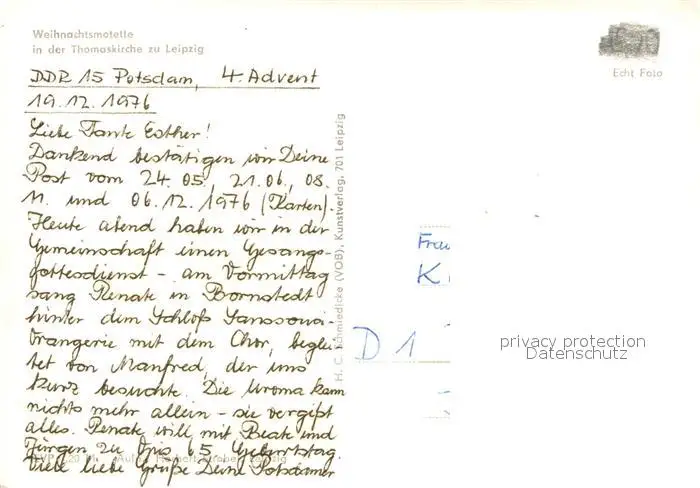 Weihnachtsmotette
in der Thomaskirche zu Leipzig
Echt Foto
DDR 15 Potsdam, 4. Advent
19.12.1976
Liebe Tante Esther!
Dankend bestätigen wir Deine
Post vom 24.05., 21.06., 08.
11. und 06.12.1976 (Karten).
Heute abend haben wir in der
Gemeinschaft einen Gesangs-
gottesdienst - am Vormittag
sang Renate in Bornstedt
hinter dem Schloß Sanssouci-
Orangerie mit dem Chor, beglei
tet von Manfred, der uns
kurz besuchte. Die Uroma kann
nichts mehr allein - sie vergißt
alles. Renate will mit Beate und
Jürgen zu Opis 65. Geburtstag.
Viele liebe Grüße Deine Potsdamer
H. C. Schmiedicke (VOB), Kunstverlag, 701 Leipzig
Frau
K
D 1
privacy protection
Datenschutz